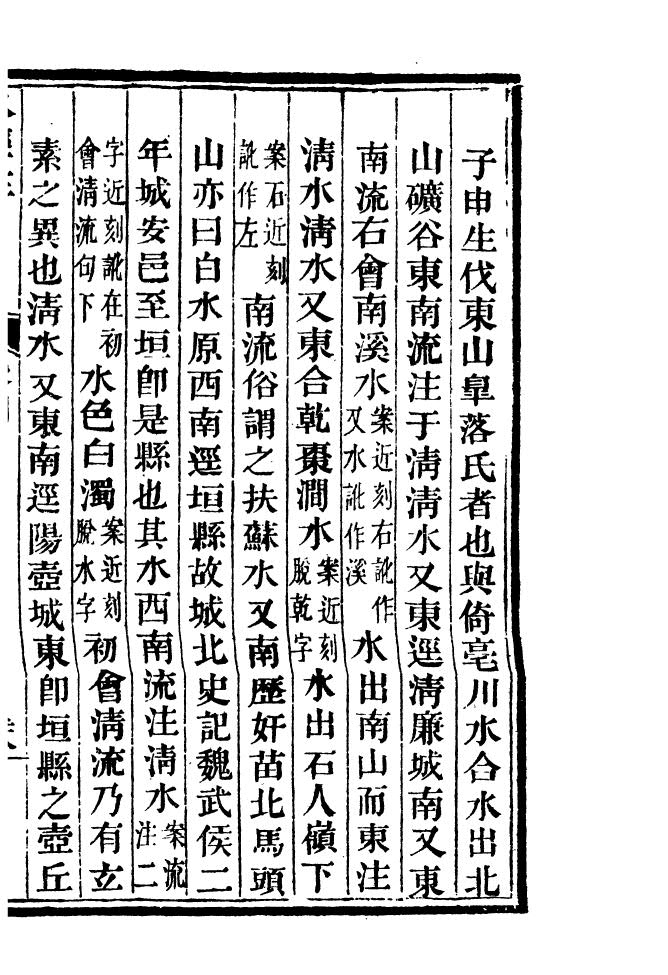 子申生伐東山臯落氏者也與倚亳川水合水出北
山礦谷東南流注于淸淸水又東逕淸廉城南又東
南流右會南溪水案近刻右訛作又水訛作溪水出南山而東注
淸水淸水又東合乾棗澗水案近刻脫乾字水出石人嶺下
案石近刻訛作左南流俗謂之扶蘇水又南歷奸苗北馬頭
山亦曰白水原西南逕垣縣故城北史記魏武侯二
年城安邑至垣卽是縣也其水西南流注淸水案流注二
字近刻訛在初會清流句下水色白濁案近刻脫水字初會淸流乃有玄
素之異也淸水又東南逕陽壺城東卽垣縣之壺丘